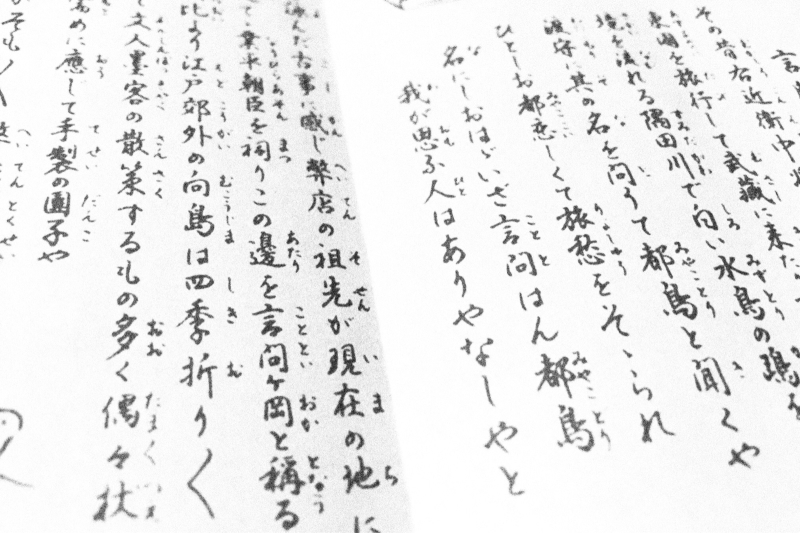 言
その昔右近衛中将
東國を旅行して武蔵に来た
境を流れる隅田川で白い水鳥の鴎を
渡守に其の名を問うて都鳥と聞くや
ひとしお都恋しくて旅愁をそゝられ
名にしおはゞいざ言問はん都鳥
我が思ふ人はありやなしやと
詠んだ古事に感じ弊店の祖先が現在の地に
て業平朝臣を祀りこの邊を言問ヶ岡と稱る
比より江戸郊外の向島は四季折り〱
て文人墨客の散策するもの多く偶々杖
需めに應じて手製の團子や